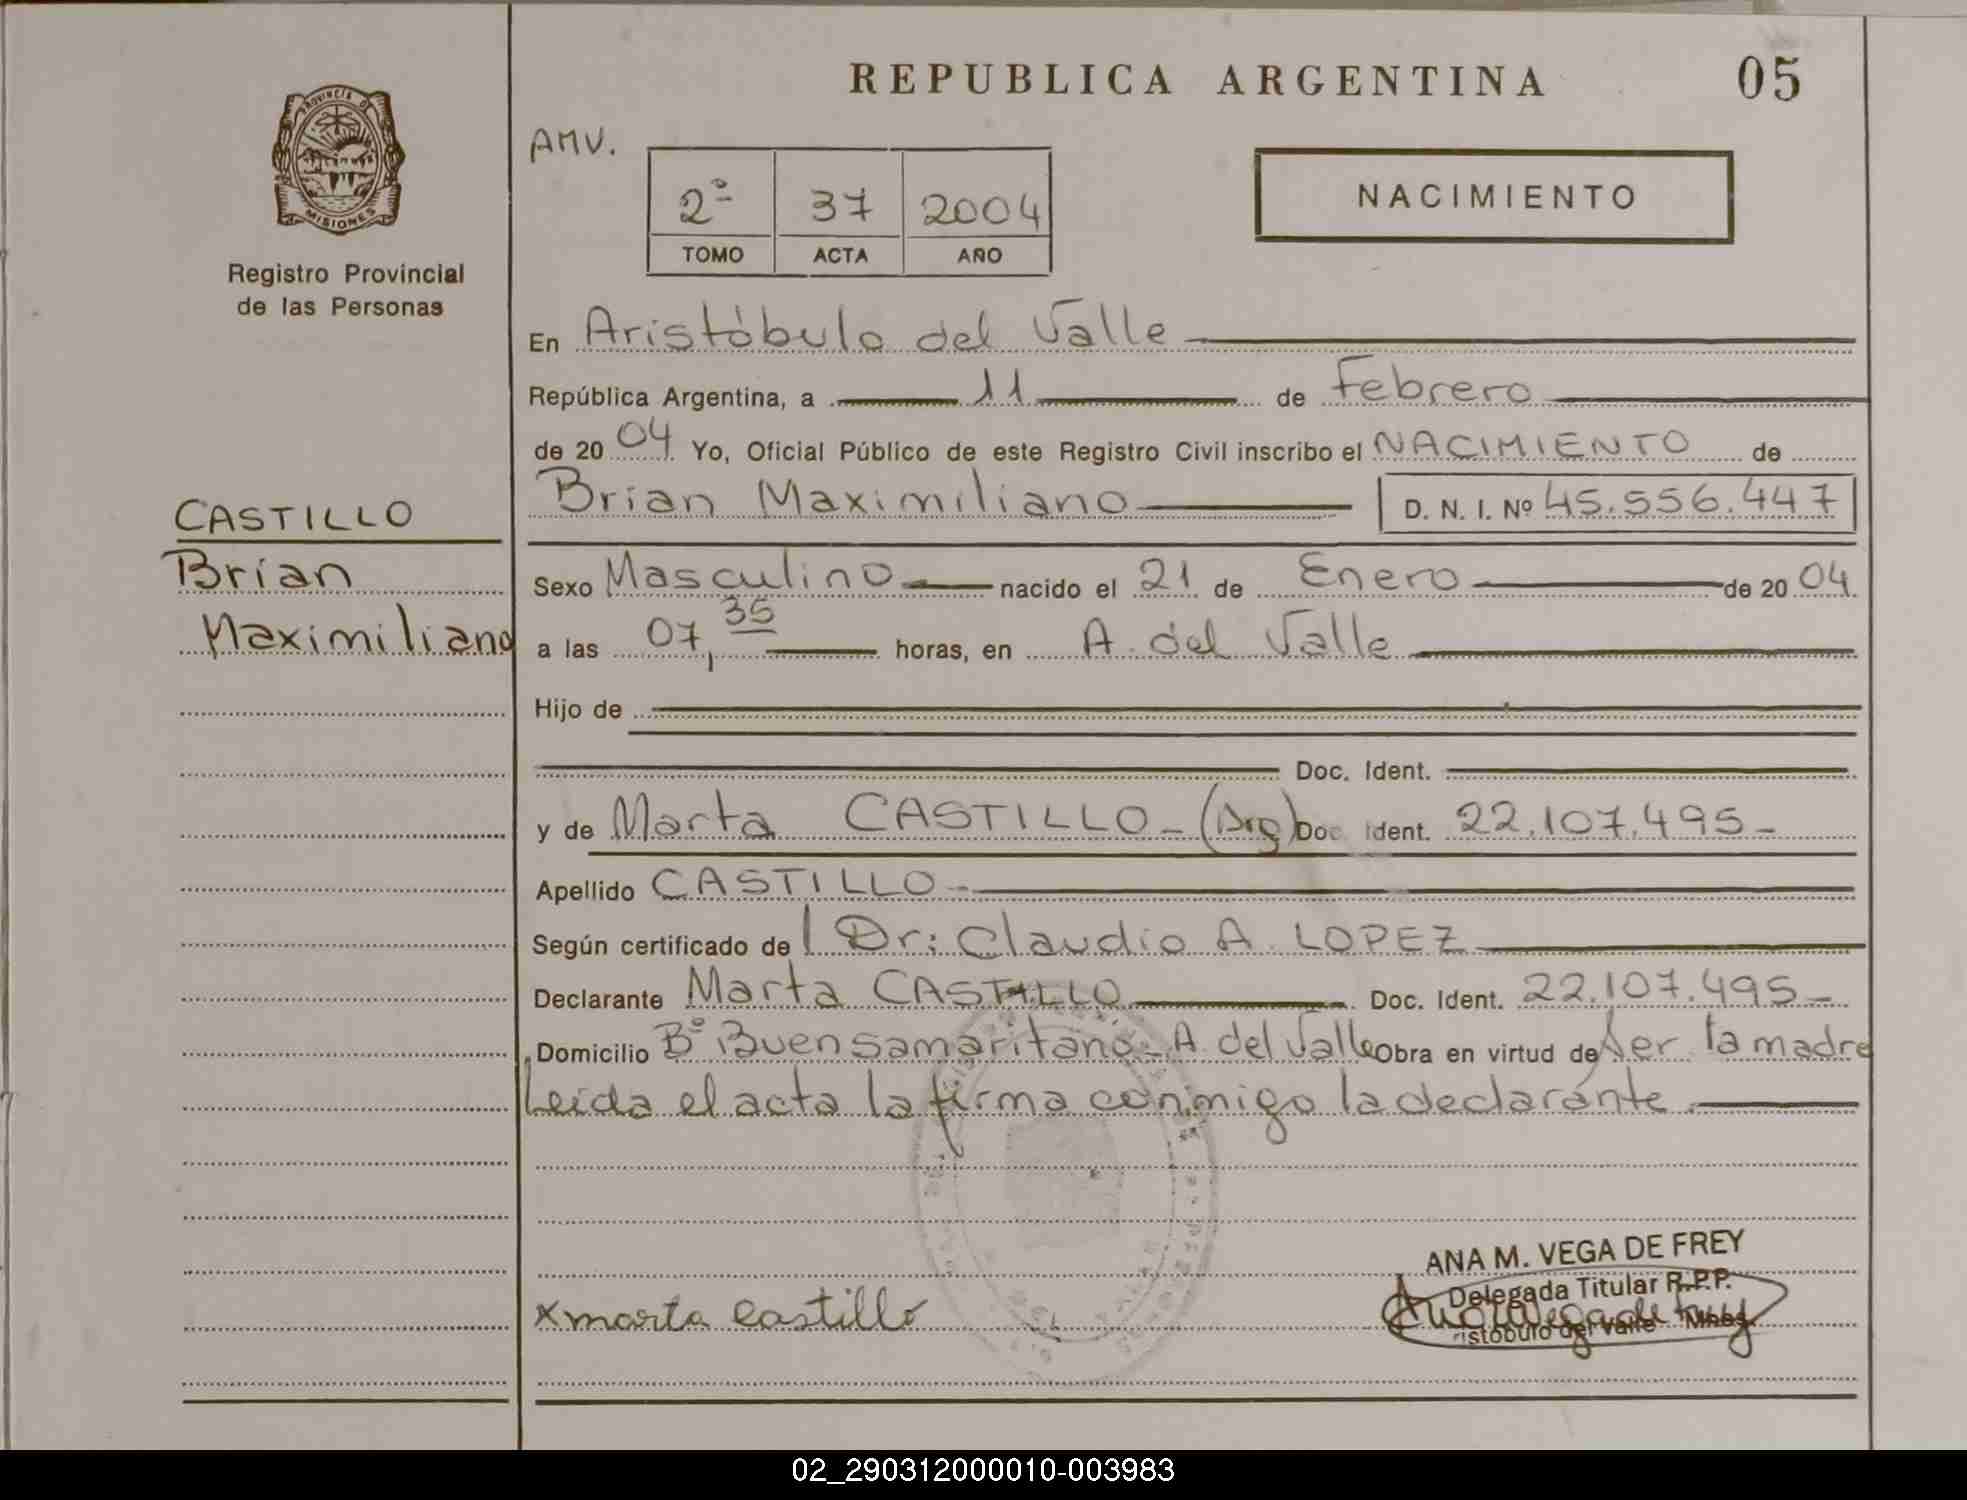 REPUBLICA ARGENTINA 05
PROVINCIA DE
MISIONES
Registro Provincial
de las Personas
AMV.
2º 37 2004
TOMO ACTA AÑO
NACIMIENTO
CASTILLO
Brian
Maximiliano
En Aristóbulo del Valle
República Argentina, a 11 de Febrero
de 2004 Yo, Oficial Público de este Registro Civil inscribo el NACIMIENTO de
Brian Maximiliano D. N. I. Nº 45.556.447
Sexo Masculino nacido el 21 de Enero de 2004.
a las 07,35 horas, en A. del Valle
Hijo de
Doc. Ident.
y de Marta CASTILLO - (Arg) Doc. Ident. 22.107.495-
Apellido CASTILLO-
Según certificado de Dr: Claudio A. LOPEZ
Declarante Marta CASTILLO Doc. Ident. 22.107.495-
Domicilio Bº Buen Samaritano - A. del Valle Obra en virtud de Ser la madre
Leída el acta la firma conmigo la declarante.
ANA M. VEGA DE FREY
Delegada Titular R.P.P.
x marta castillo
02_290312000010-003983